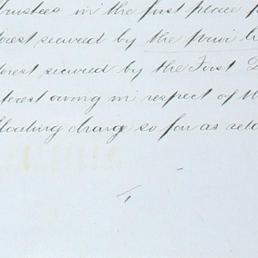 trustees in the first place
terest secured by the
terest secured by the First
terest owing in respect of
floating charge so far as